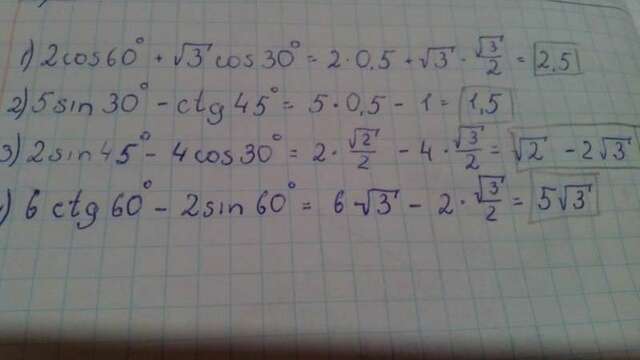 1) 2cos60° + √3 cos30° = 2·0,5 + √3 · √3/2 = 2,5
2) 5sin30° - ctg45° = 5·0,5 - 1 = 1,5
3) 2sin45° - 4cos30° = 2·√2/2 - 4·√3/2 = √2 - 2√3
) 6ctg60° - 2sin60° = 6√3 - 2·√3/2 = 5√3